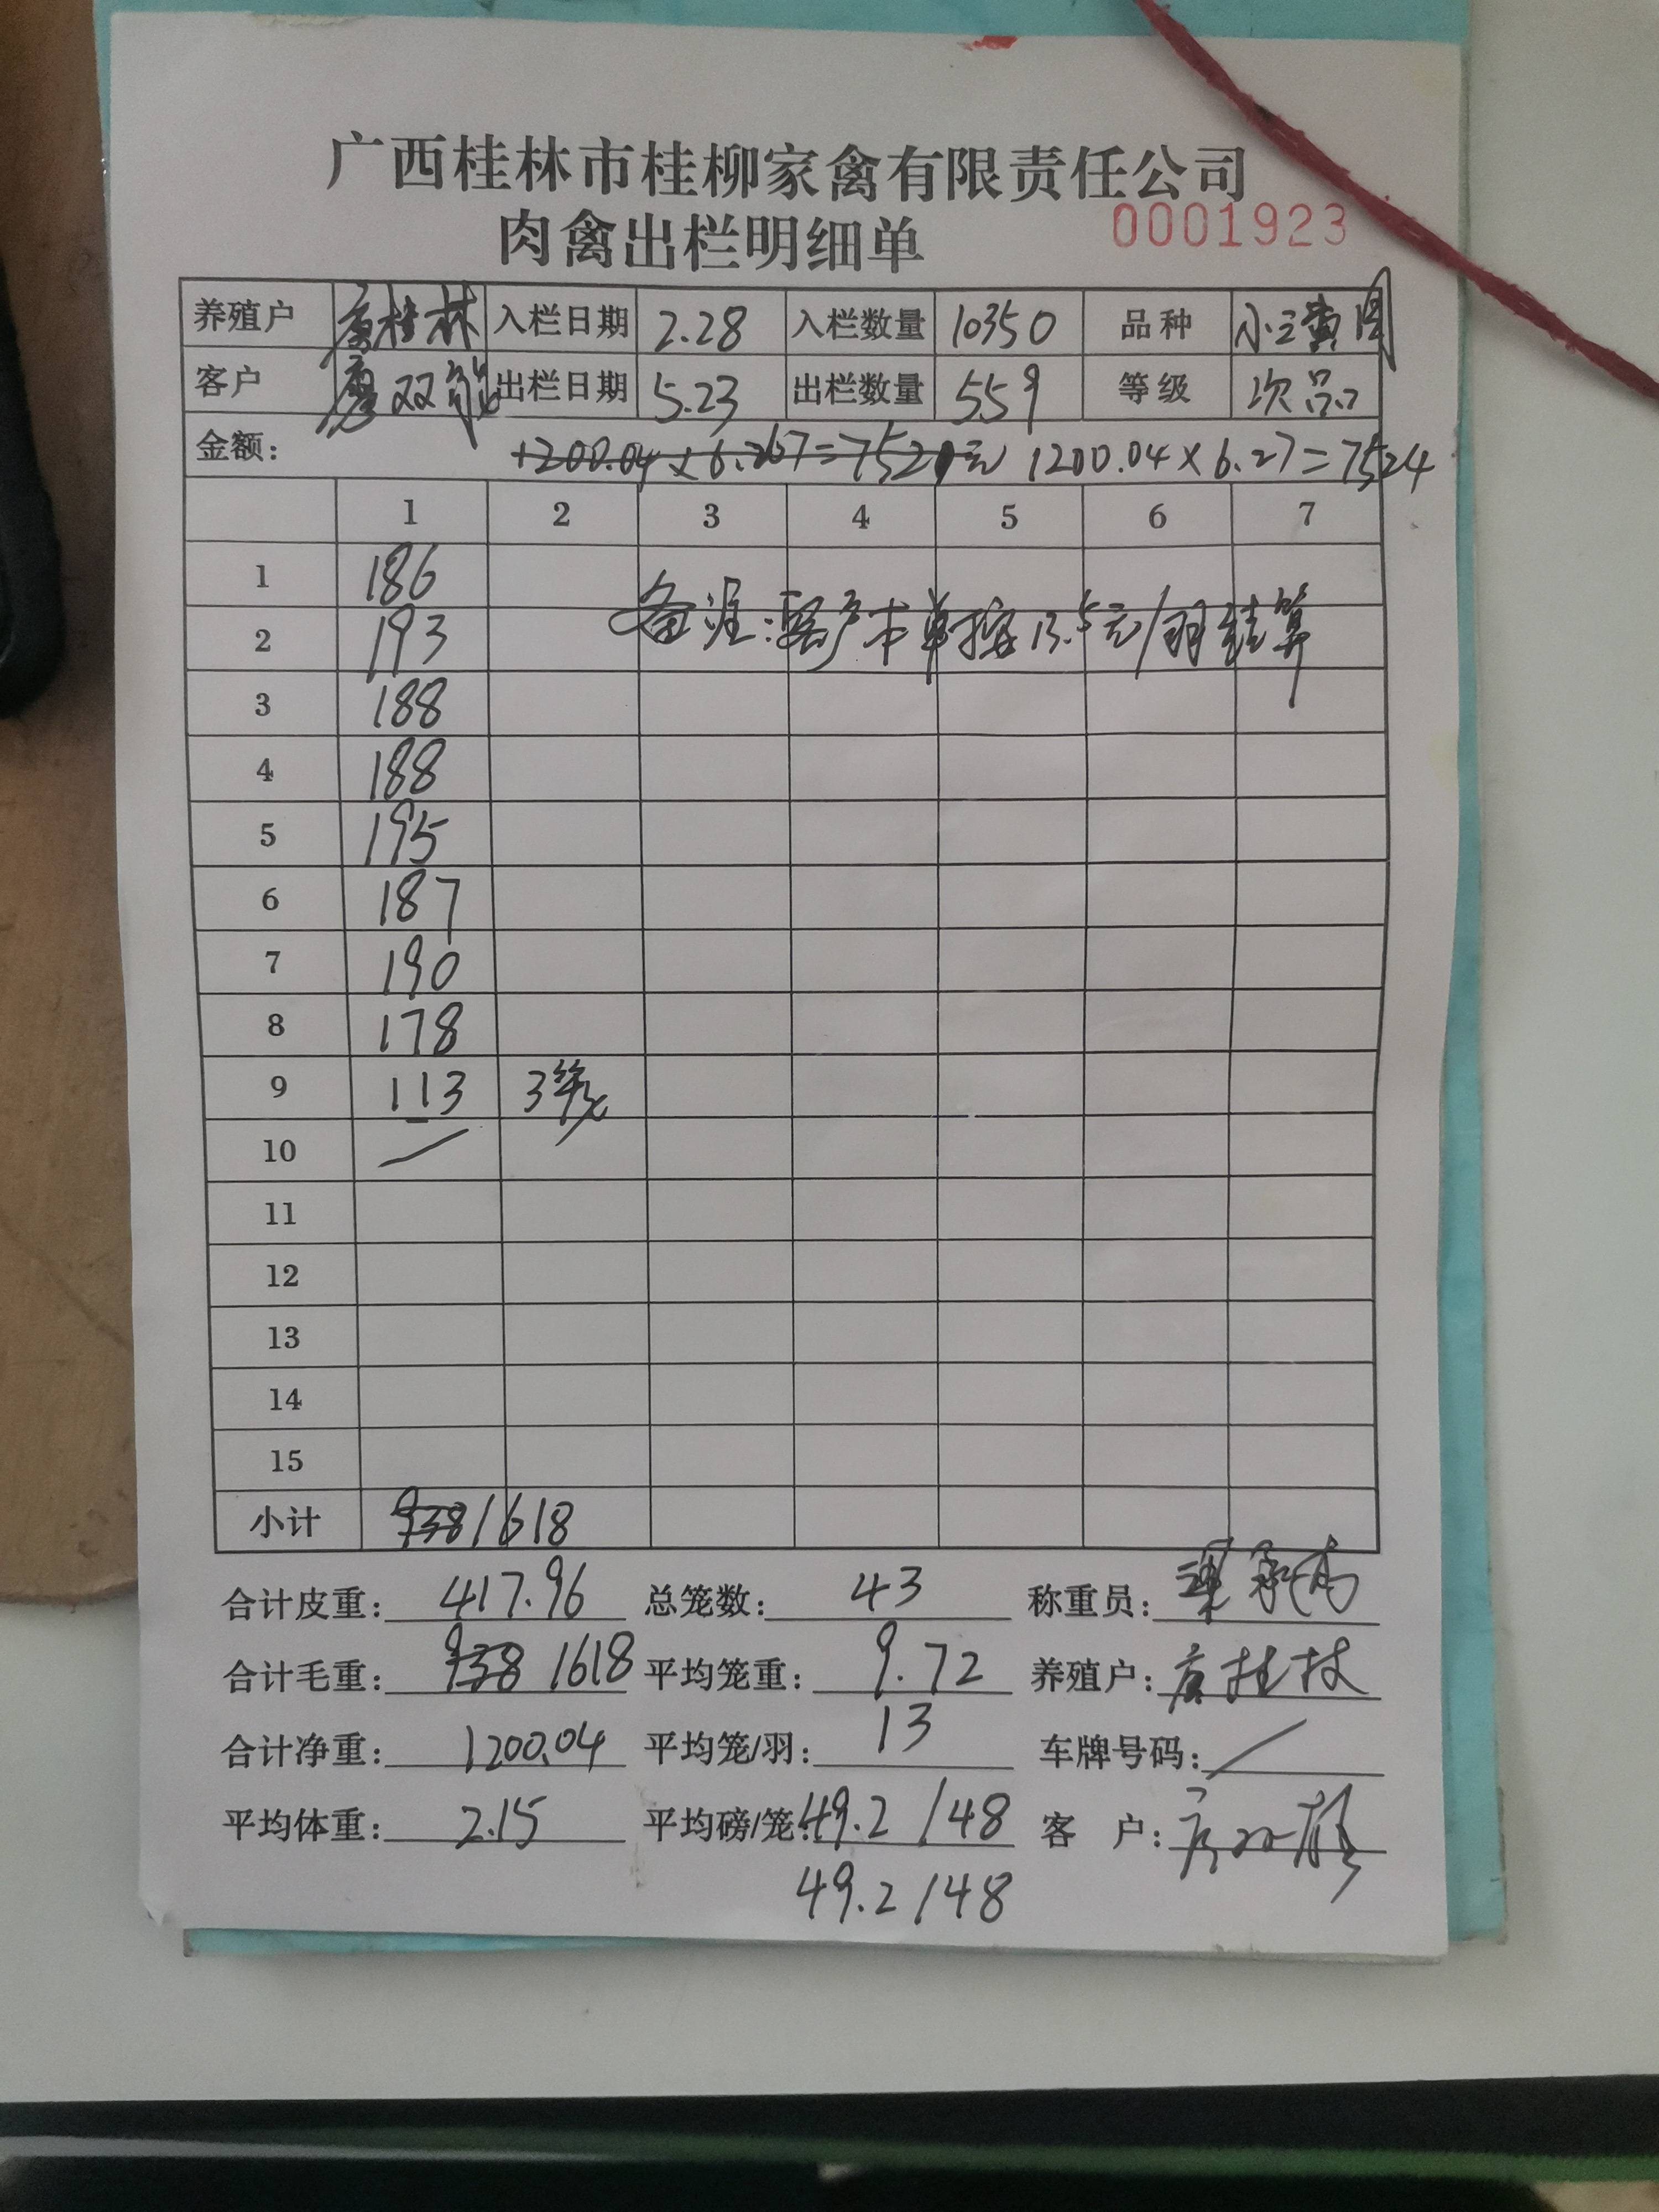 广西桂林市桂柳家禽有限责任公司
肉禽出栏明细单 0001923
养殖户 桂林 入栏日期 2.28 入栏数量 10350 品种 小三黄
客户 廖双 出栏日期 5.23 出栏数量 559 等级 次品
金额: 1200.04×6.267=7520元 1200.04×6.27=7524
1 2 3 4 5 6 7
1 186
2 193 备注:客户本单按13.5元/羽结算
3 188
4 188
5 195
6 187
7 190
8 178
9 113 3笼
10 /
11
12
13
14
15
小计 938 1618
合计皮重: 417.96 总笼数: 43 称重员:
合计毛重: 938 1618 平均笼重: 9.72 养殖户: 桂林
合计净重: 1200.04 平均笼/羽: 13 车牌号码: /
平均体重: 2.15 平均磅/笼: 49.2/48 客 户:
49.2/48